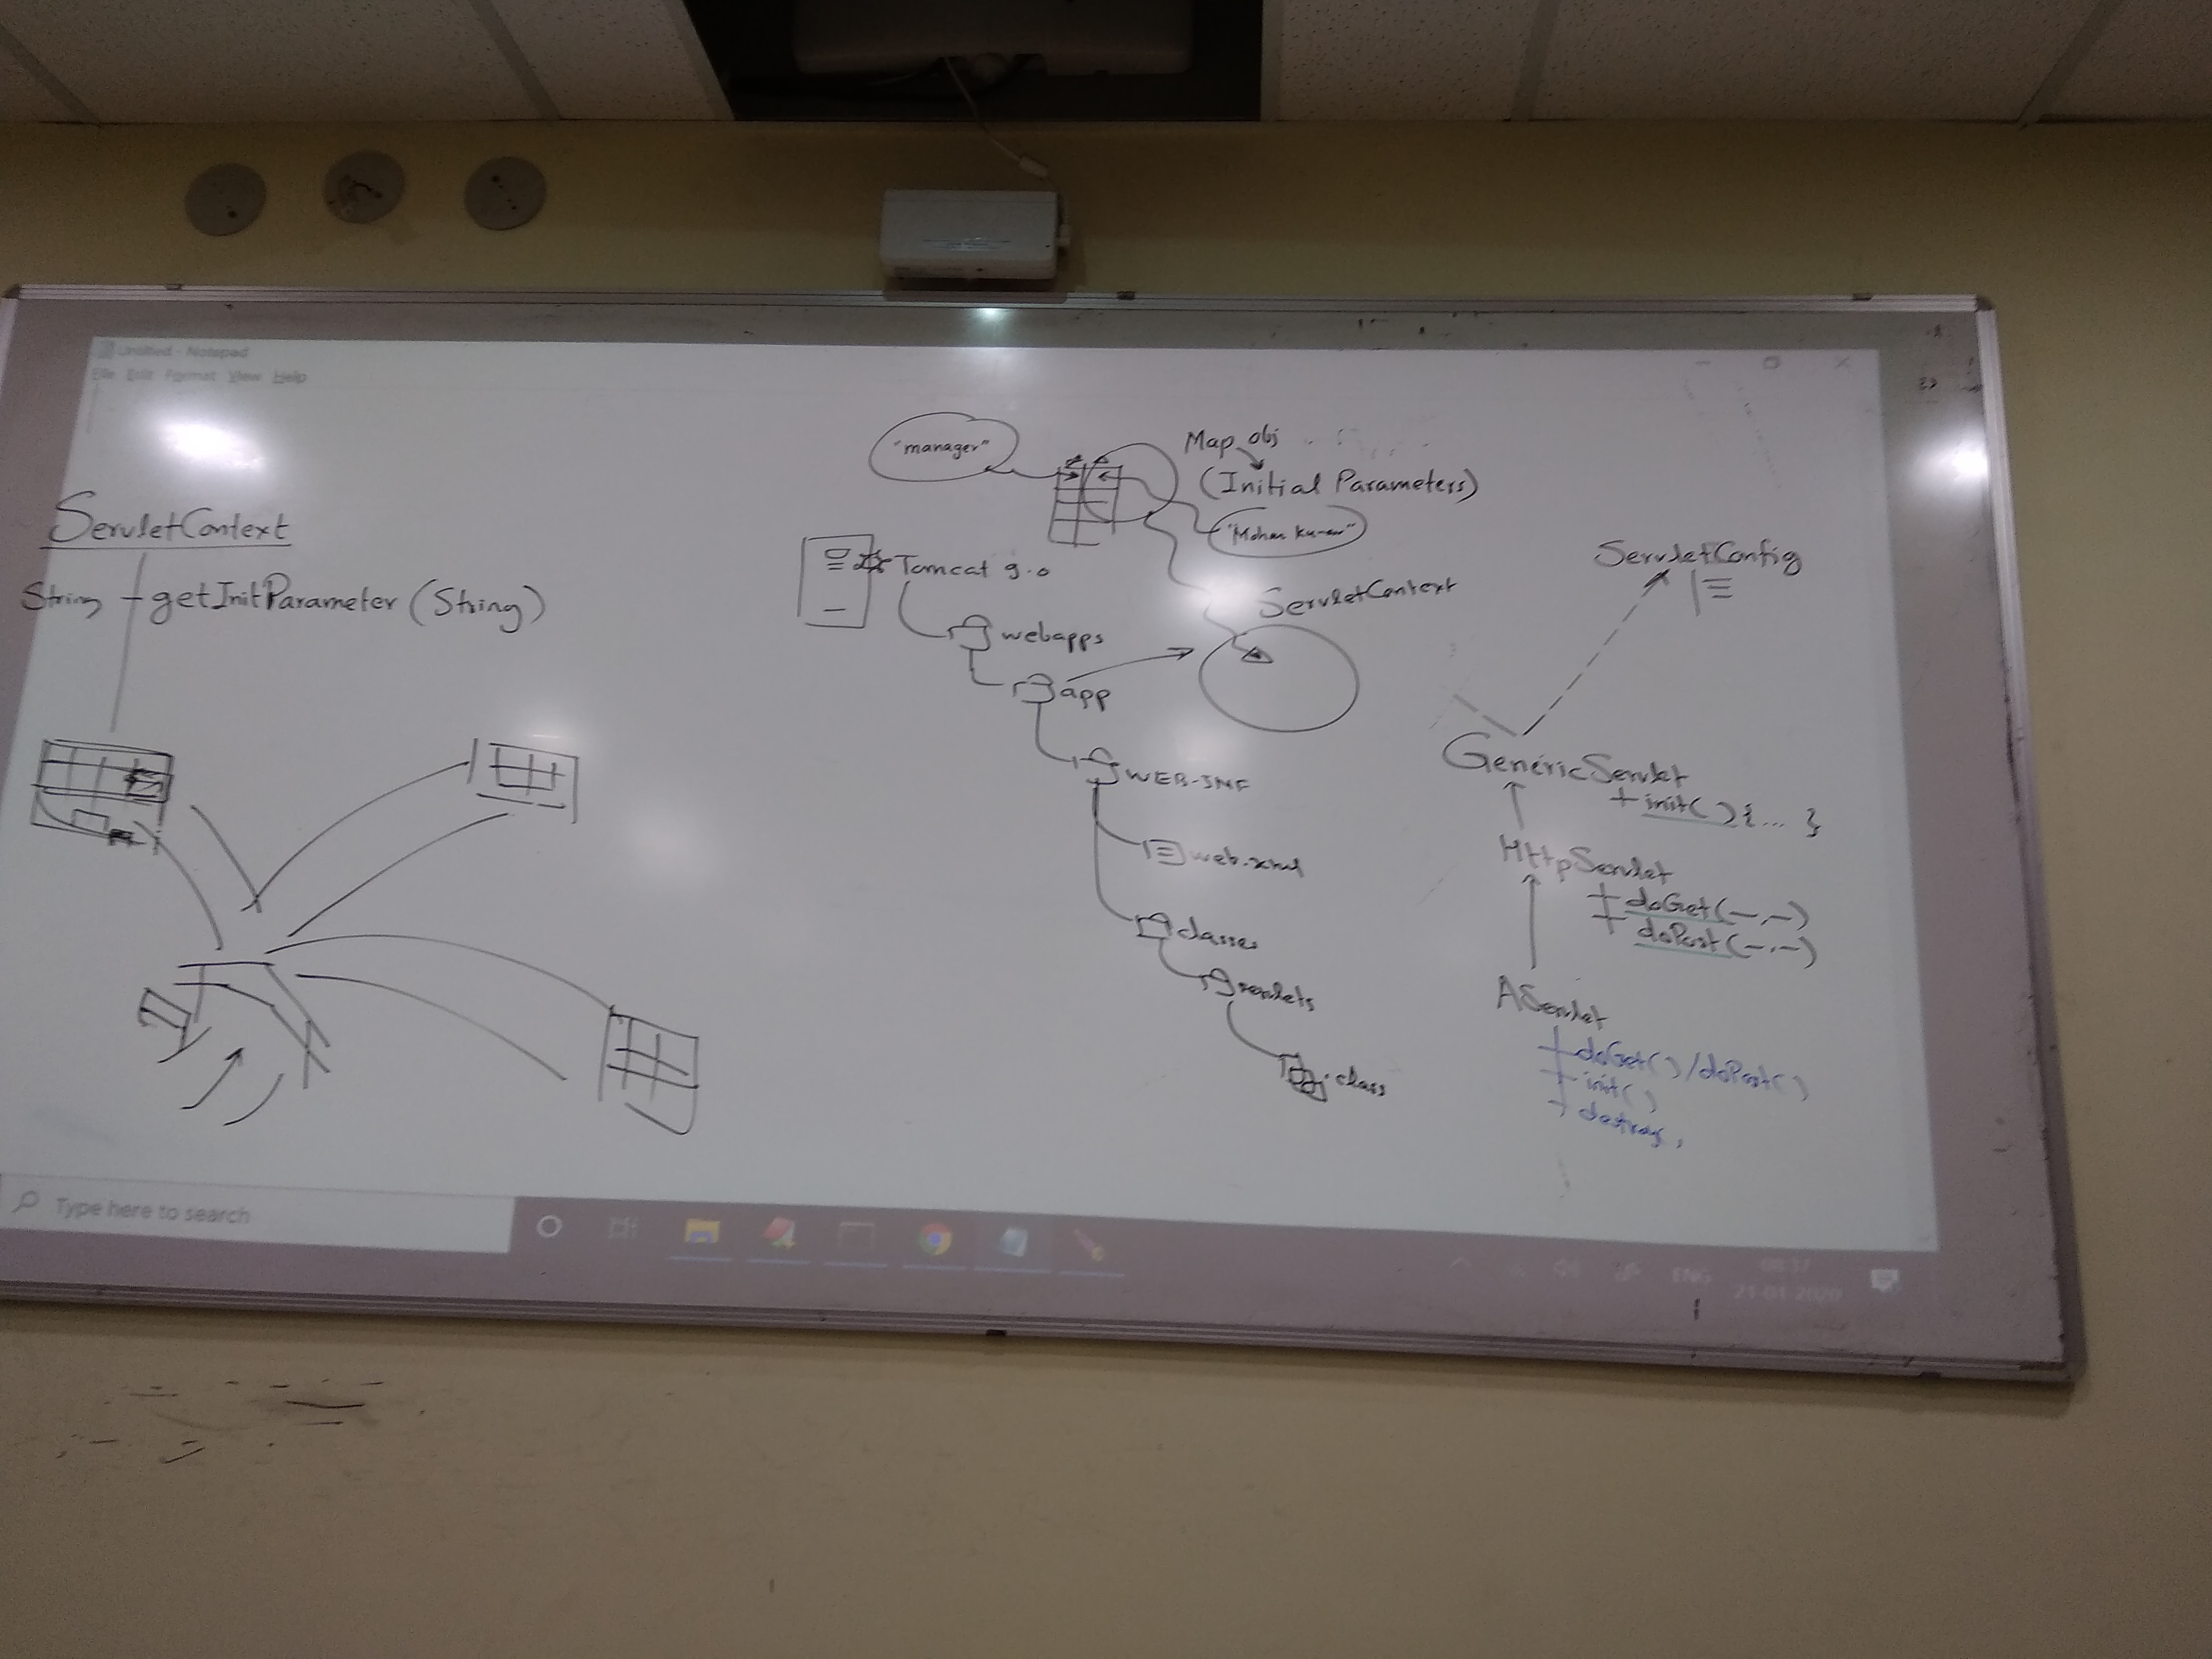 Untitled - Notepad
File Edit Format View Help
ServletContext
String getInitParameter (String)
"manager"
Map obj
(Initial Parameters)
"Mohan Kumar"
Tomcat 9.0
webapps
app
WEB-INF
web.xml
classes
servlets
.class
ServletContext
ServletConfig
GenericServlet
+ init() {... }
HttpServlet
doGet(-,-)
doPost(-,-)
AServlet
doGet() / doPost()
init()
Type here to search
ENG
21-01-2020